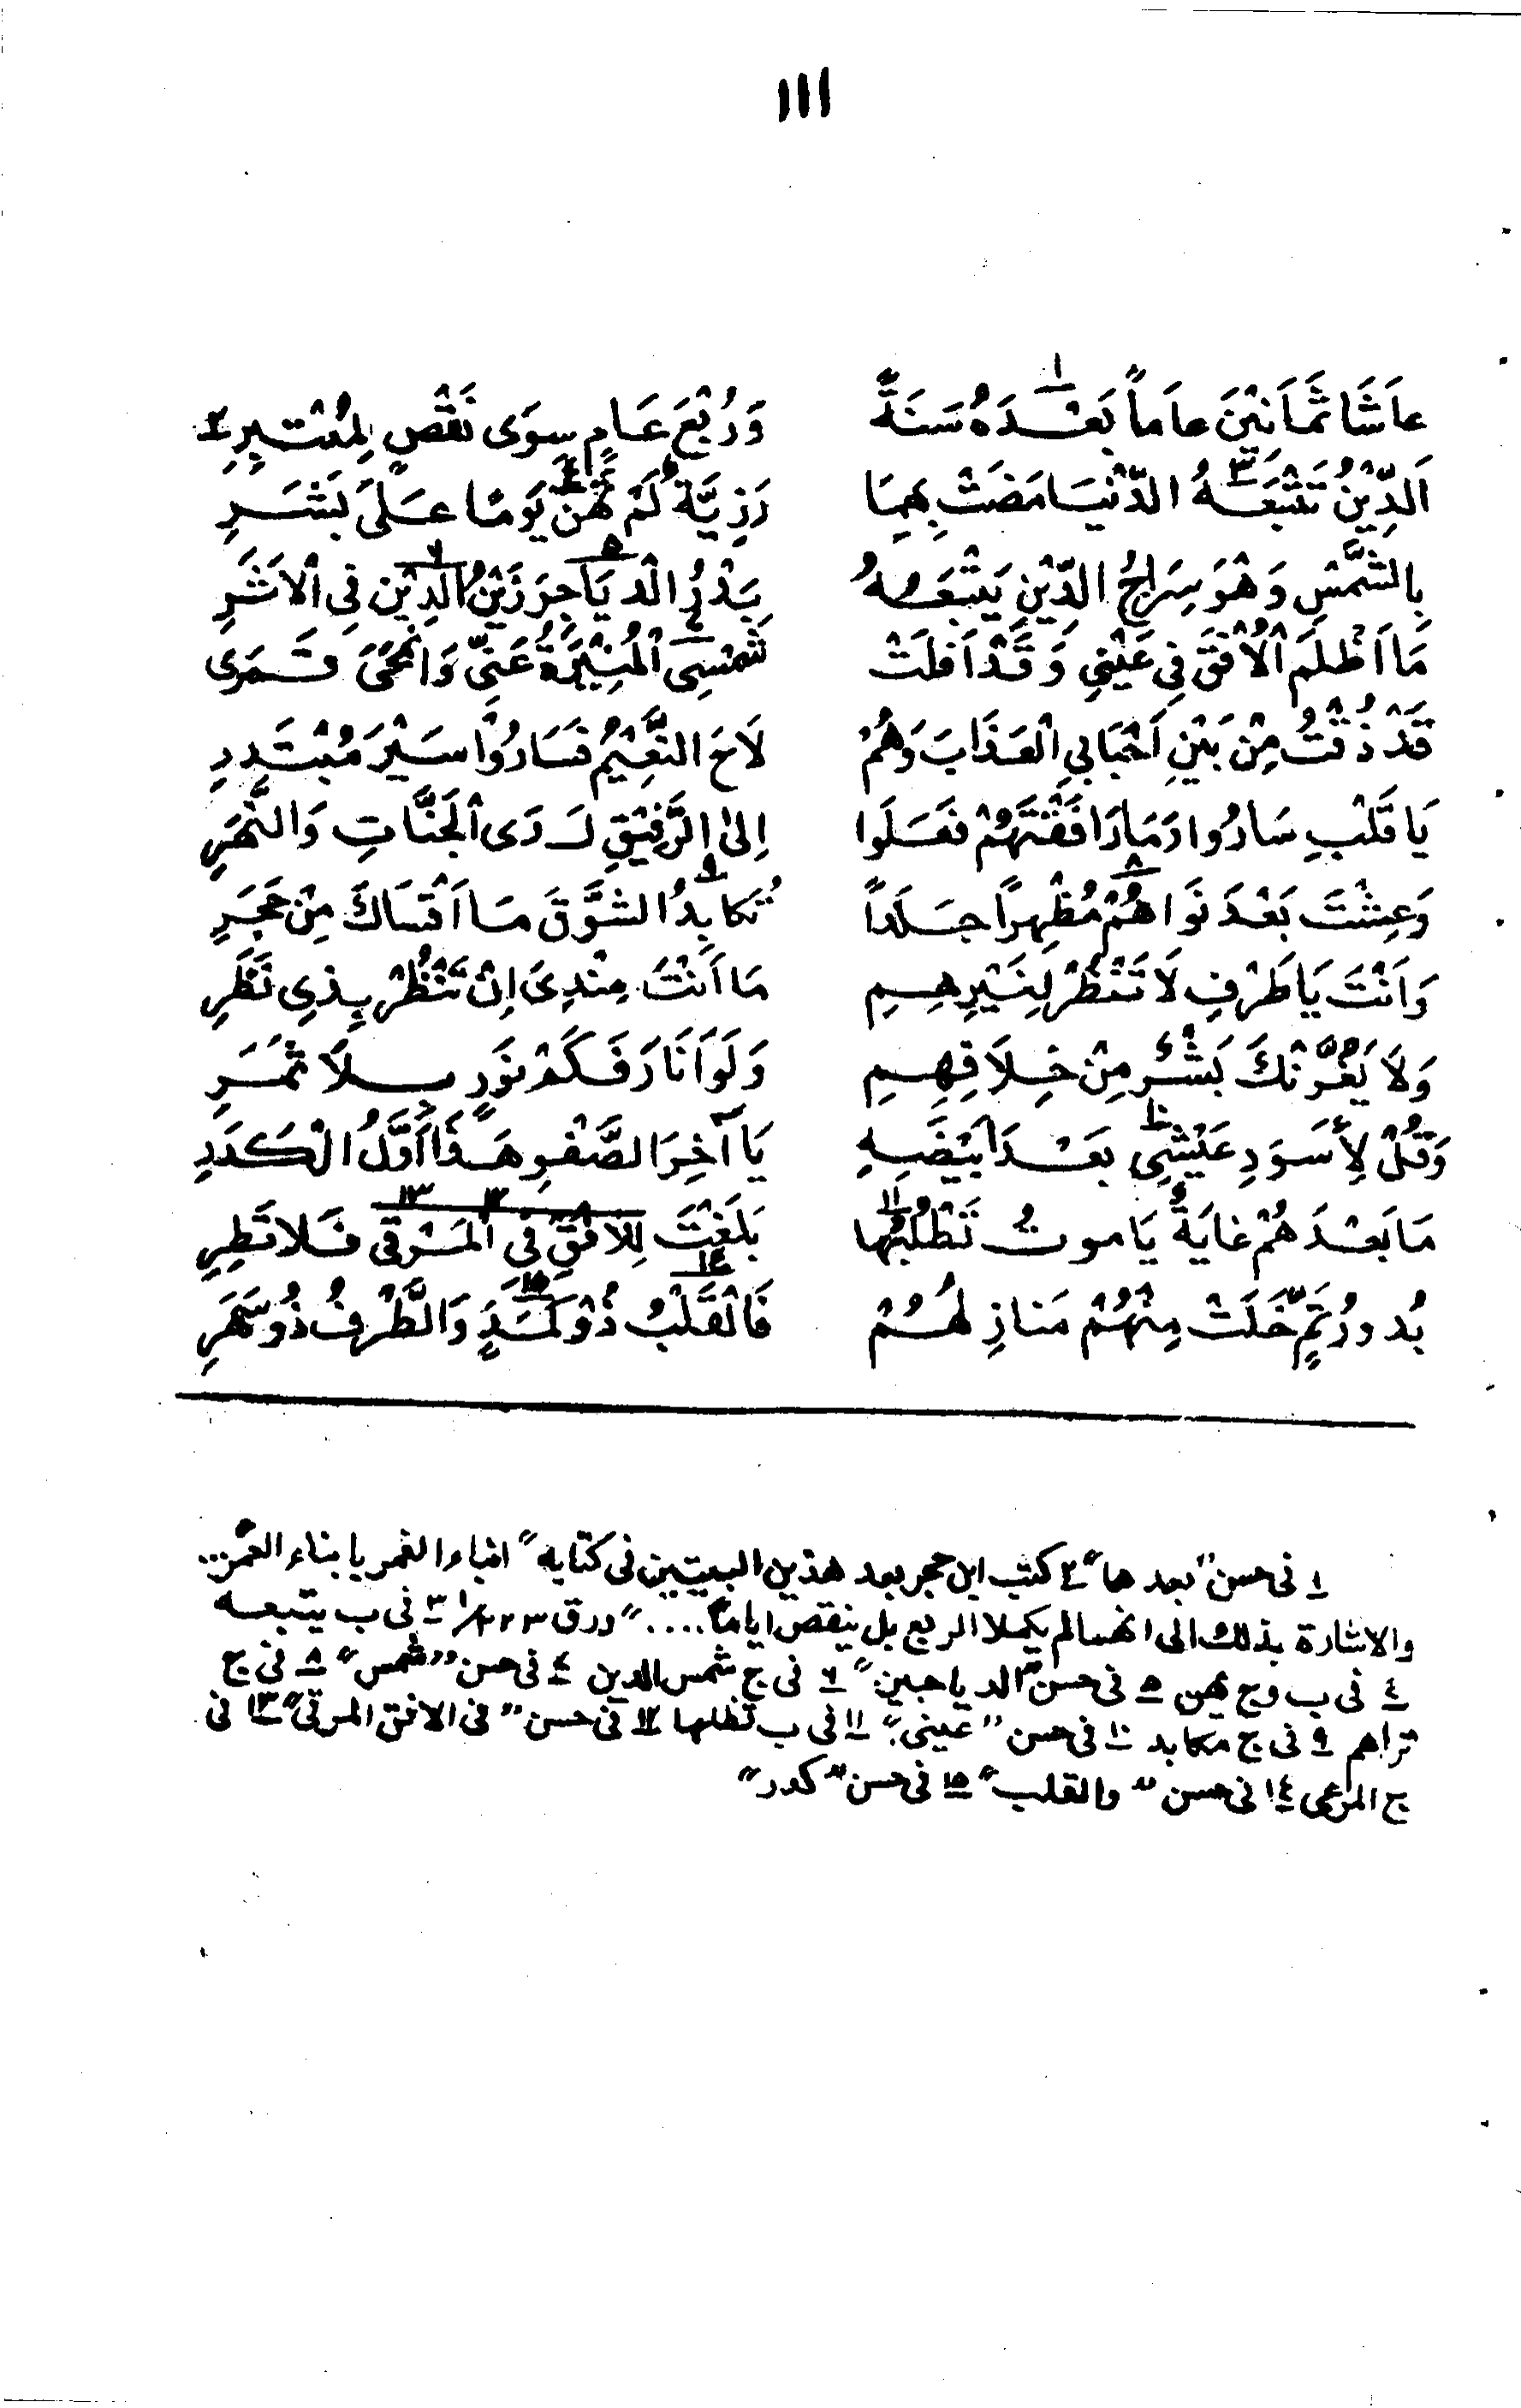 ١١١
عَاشَا ثَمَانِيْنَ عاماً بَعْدَهُ١ سَنَةً وَرُبْعَ عَامٍ سِوَى نَقْصٍ لِمُعْتَبِرِ٢
اَلدِّيْنُ تَتْبَعُهُ٣ الدُّنْيَا مَضَتْ بِهِمَا رَزِيَّةٌ لَمْ تَهُنْ٤ يَوْمًا عَلَى بَشَرِ
بِالشَّمْسِ وَهْوَ سِرَاجُ الدِّيْنِ يَتْبَعُهُ بَدْرُ الْدَيَاجِر٥ زَيْنُ الدِيْن٦ فِي الْاَثَرِ
مَا اَظْلَمَ الْاُفْقَ فِي عَيْنِي وَقَدْ اَفَلَتْ شَمْسِي٧ الْمُنِيْرَةُ عَنِّي وَانْمَحَى قَمَرى
قَدْ ذُقْتُ مِنْ بَيْنِ اَحْبَابِي الْعَذَابَ وَهُمْ لَاحَ النَّعِيْمُ فَسَارُوْا سَيْرَ مُبْتَدِرِ
يَا قَلْبِ سَارُوا وَمَا رَافَقْتَهُمْ فَعَلَوا اِلىٰ الرَّفِيْقِ لَدَى الْجَنَّاتِ وَالنَّهَرِ
وَعِشْتَ بَعْدَ نَوَاهُمْ٨ مُظْهِراً جَلَداً تُكابِدُ٩ الشَّوْقَ مَا اَقْسَاكَ مِنْ حَجَرِ
وَاَنْتَ يَا طَرْفِ لَا تَنْظُرْ لِغَيْرِهِمِ مَا اَنْتَ عِنْدِىَ اِنْ تَنْظُرْ بِذِي نَظَرِ
وَلَا يَغُرَّنْكَ بَشْرٌ مِنْ خِلَافِهِمِ وَلَوْ اَنَارَ فَكَمْ نَوْرٍ بِلَا ثَمَرِ
وَقُلْ لِأَسْوَدِ عَيْشِي١٠ بَعْدَ اَبْيَضِهِ يَا آخِرَ الصَّفْوِ هَذَا اَوَّلُ الْكَدَرِ
مَا بَعْدَهُمْ غايَةٌ يَا موتُ تَطْلُبُها١١ بَلَغْتَ لِلاُفْقِ فِى١٢ الْمَرْقى١٣ فَلا تَطِرِ
بُدورُ تَمٍّ خَلَتْ مِنْهُمْ مَنازِلُهُمْ فَالْقَلْبُ١٤ ذُوْ كَمَدٍ١٥ وَالطَّرْفُ ذُو سَهَرِ
١ فى حسن "بعدها" ٢ كتب ابن حجر بعد هذين البيتين فى كتابه "انباء الغمر بابناء العمر...
والاشارة بذلك الى انهما لم يكملا الربع بل ينقص اياماً...." ورق ٢٢٣/١ ٣ فى ب يتبعه
٤ فى ب وج يهن ٥ فى حسن "الدياجين" ٦ فى ج شمس الدين ٧ فى حسن "شمس" ٨ فى ج
تراهم ٩ فى ج مكابد ١٠ فى حسن "عينى" ١١ فى ب تظلها ١٢ فى حسن "فى الافق المرقى" ١٣ فى
ج المرعى ١٤ فى حسن "والقلب" ١٥ فى حسن "كدر"